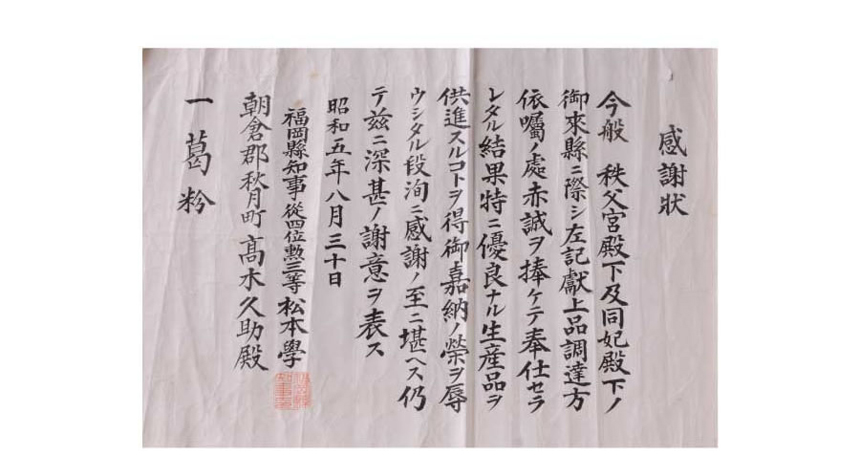 感謝狀
今般 秩父宮殿下及同妃殿下ノ
御來縣ニ際シ左記獻上品調達方
依囑ノ處赤誠ヲ捧ケテ奉仕セラ
レタル結果特ニ優良ナル生産品ヲ
供進スルコトヲ得御嘉納ノ榮ヲ辱
ウシタル段洵ニ感謝ノ至ニ堪ヘス仍
テ玆ニ深甚ノ謝意ヲ表ス
昭和五年八月三十日
福岡縣知事從四位勲三等 松本學
朝倉郡秋月町 高木久助殿
一 葛粉